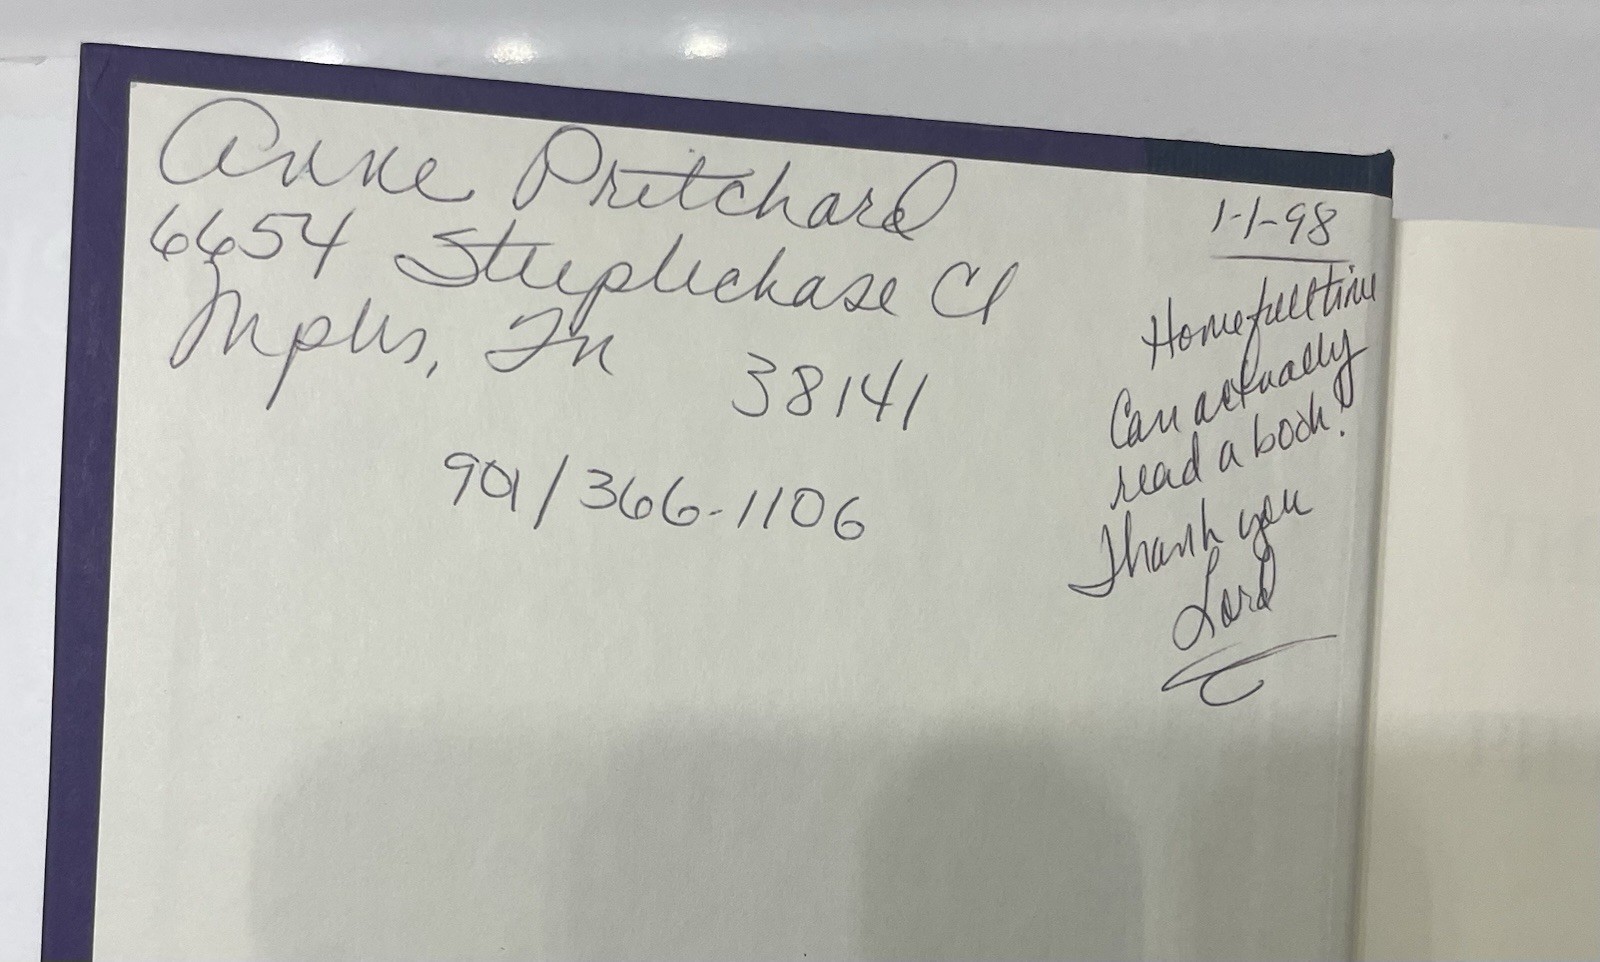 Anne Pritchard
6654 Steeplechase Cl
Mphs, Tn 38141
901/366-1106
1-1-98
Home fulltime
Can actually
read a book!
Thank you
Lord